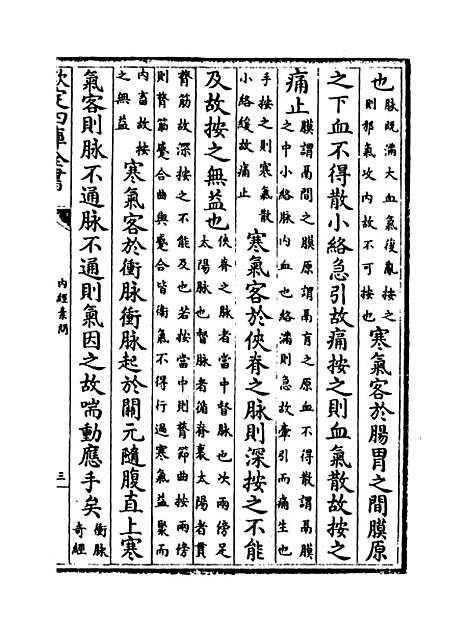 也脉既滿大血氣復亂按之
則邪氣攻内故不可按也
寒氣客於腸胃之間膜原
之下血不得散小絡急引故痛按之則血氣散故按之
痛止
膜謂鬲間之膜原謂鬲肓之原血不得散謂鬲膜
之中小絡脉内血也絡滿則急故牽引而痛生也
手按之則寒氣散
小絡緩故痛止
寒氣客於俠脊之脉則深按之不能
及故按之無益也
俠脊之脉者當中督脉也次兩傍足
太陽脉也督脉者循脊裏太陽者貫
膂筋故深按之不能及也若按當中則膂節曲按兩傍
則膂筋蹙合曲與蹙合皆衛氣不得行過寒氣益聚而
内畜故按
之無益
寒氣客於衝脉衝脉起於關元隨腹直上寒
氣客則脉不通脉不通則氣因之故喘動應手矣
衝脉
奇經
欽定四庫全書
内經素問
三